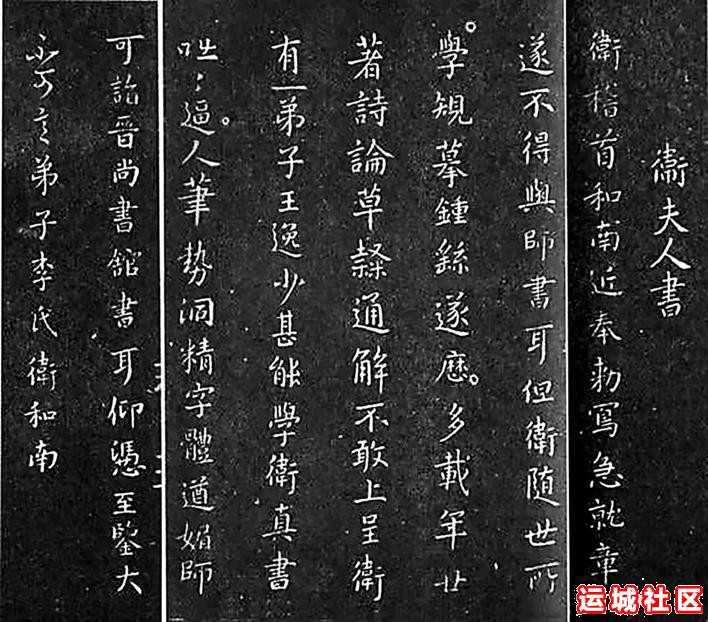 衛夫人書
衛稽首和南近奉勅寫急就章
遂不得與師書耳但衛隨世所
學規摹鍾繇遂歷多載年廿
著詩論草隸通解不敢上呈衛
有一弟子王逸少甚能學衛真書
咄々逼人筆勢洞精字體遒媚師
可詣晉尚書館書耳仰憑至鑒大
不可言弟子李氏衛和南
运城社区